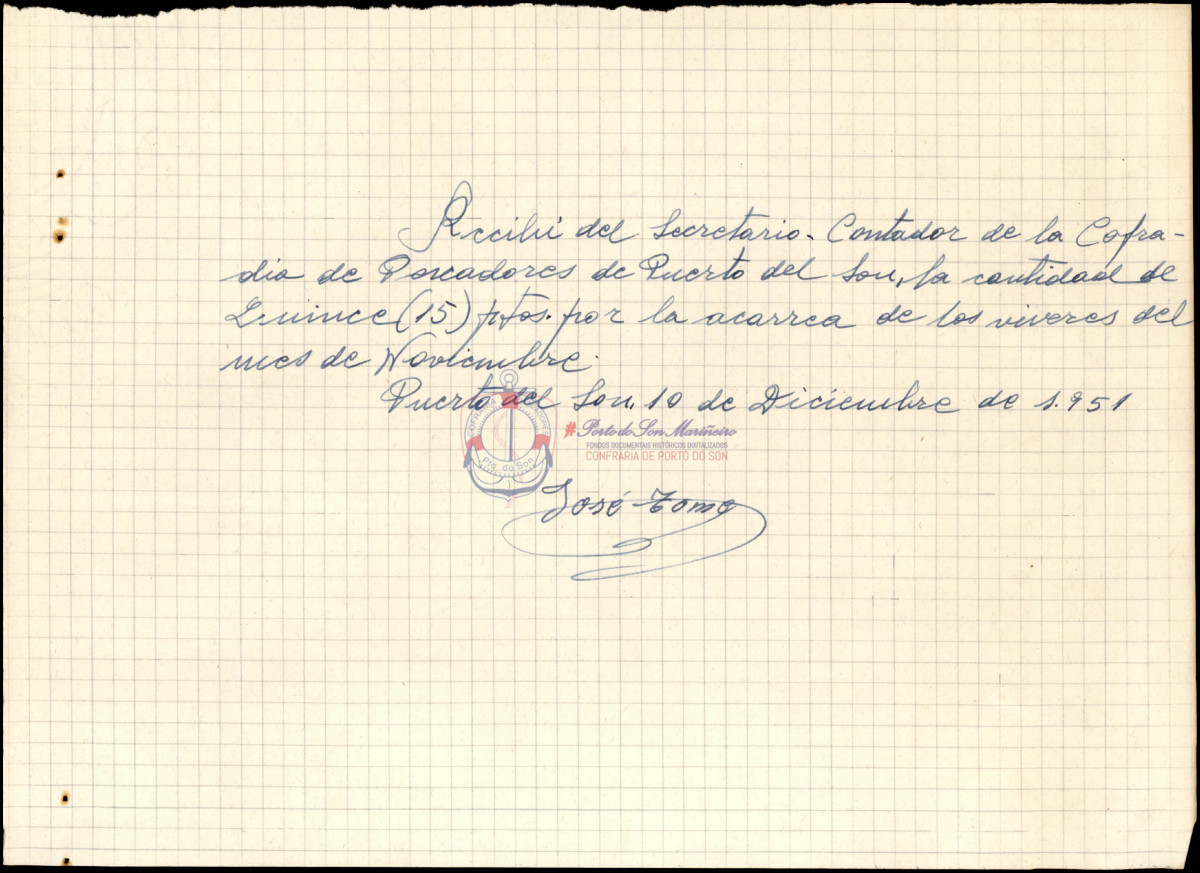 Recibí del Secretario-Contador de la Cofra-
dia de Pescadores de Puerto del Son, la cantidad de
Quince (15) ptas. por la acarrea de los viveres del
mes de Noviembre.
Puerto del Son, 10 de Diciembre de 1.951
#Porto do Son Mariñeiro
FONDOS DOCUMENTAIS HISTÓRICOS DIXITALIZADOS
CONFRARÍA DE PORTO DO SON
Pto. do Son
José Tomé